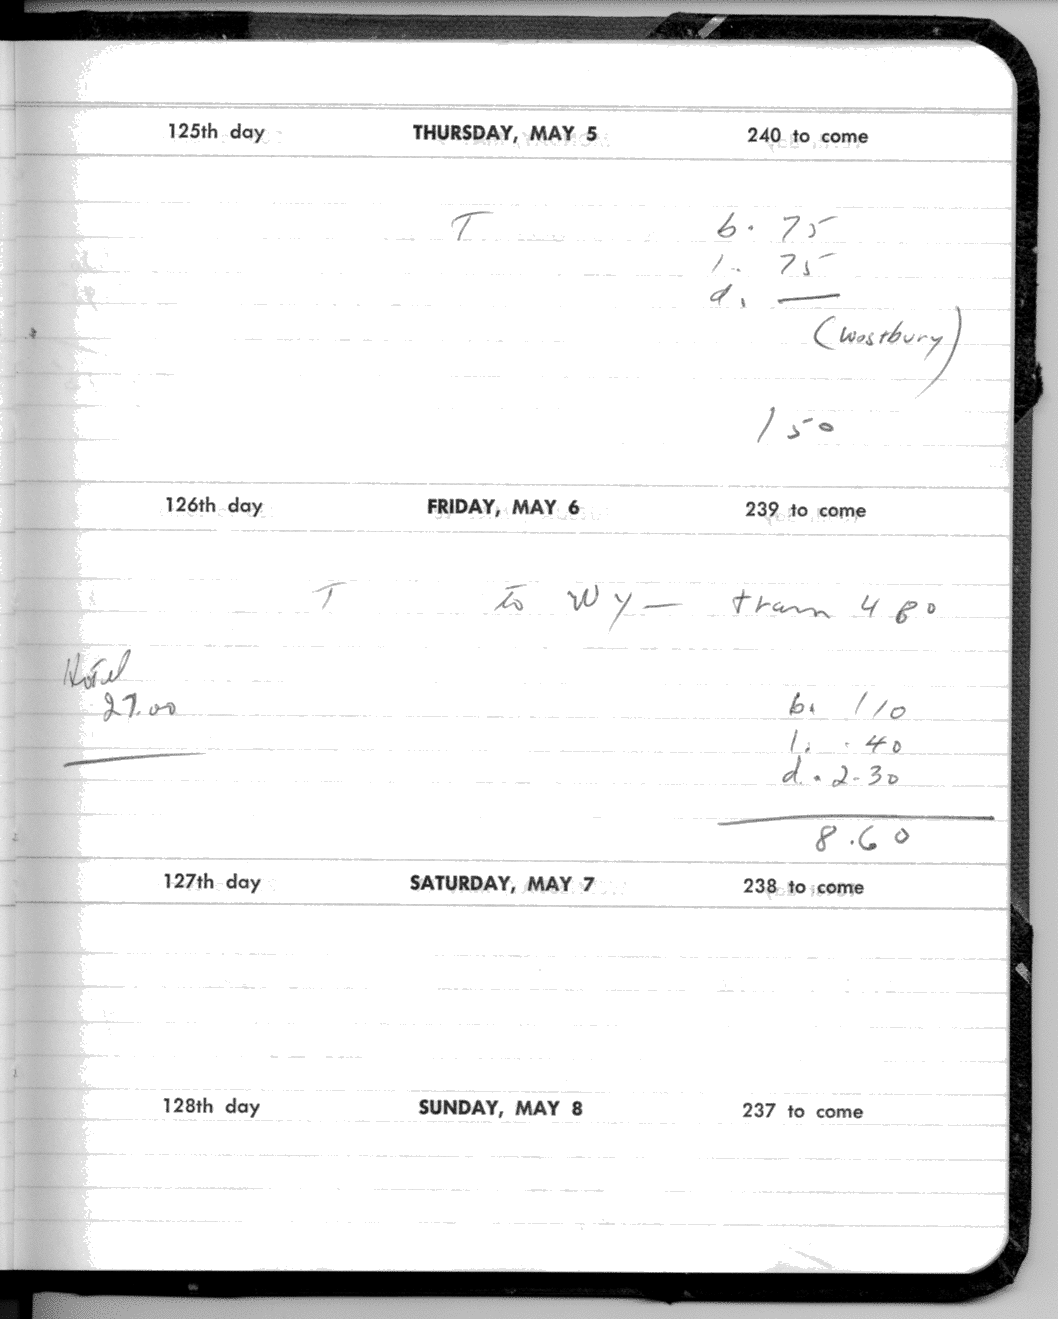 125th day THURSDAY, MAY 5 240 to come
T b. 75
l. 75
d. —
(Westbury)
150
126th day FRIDAY, MAY 6 239 to come
T to NY — train 4 80
Hotel
27.00
b. 110
l. .40
d. 2.30
8.60
127th day SATURDAY, MAY 7 238 to come
128th day SUNDAY, MAY 8 237 to come